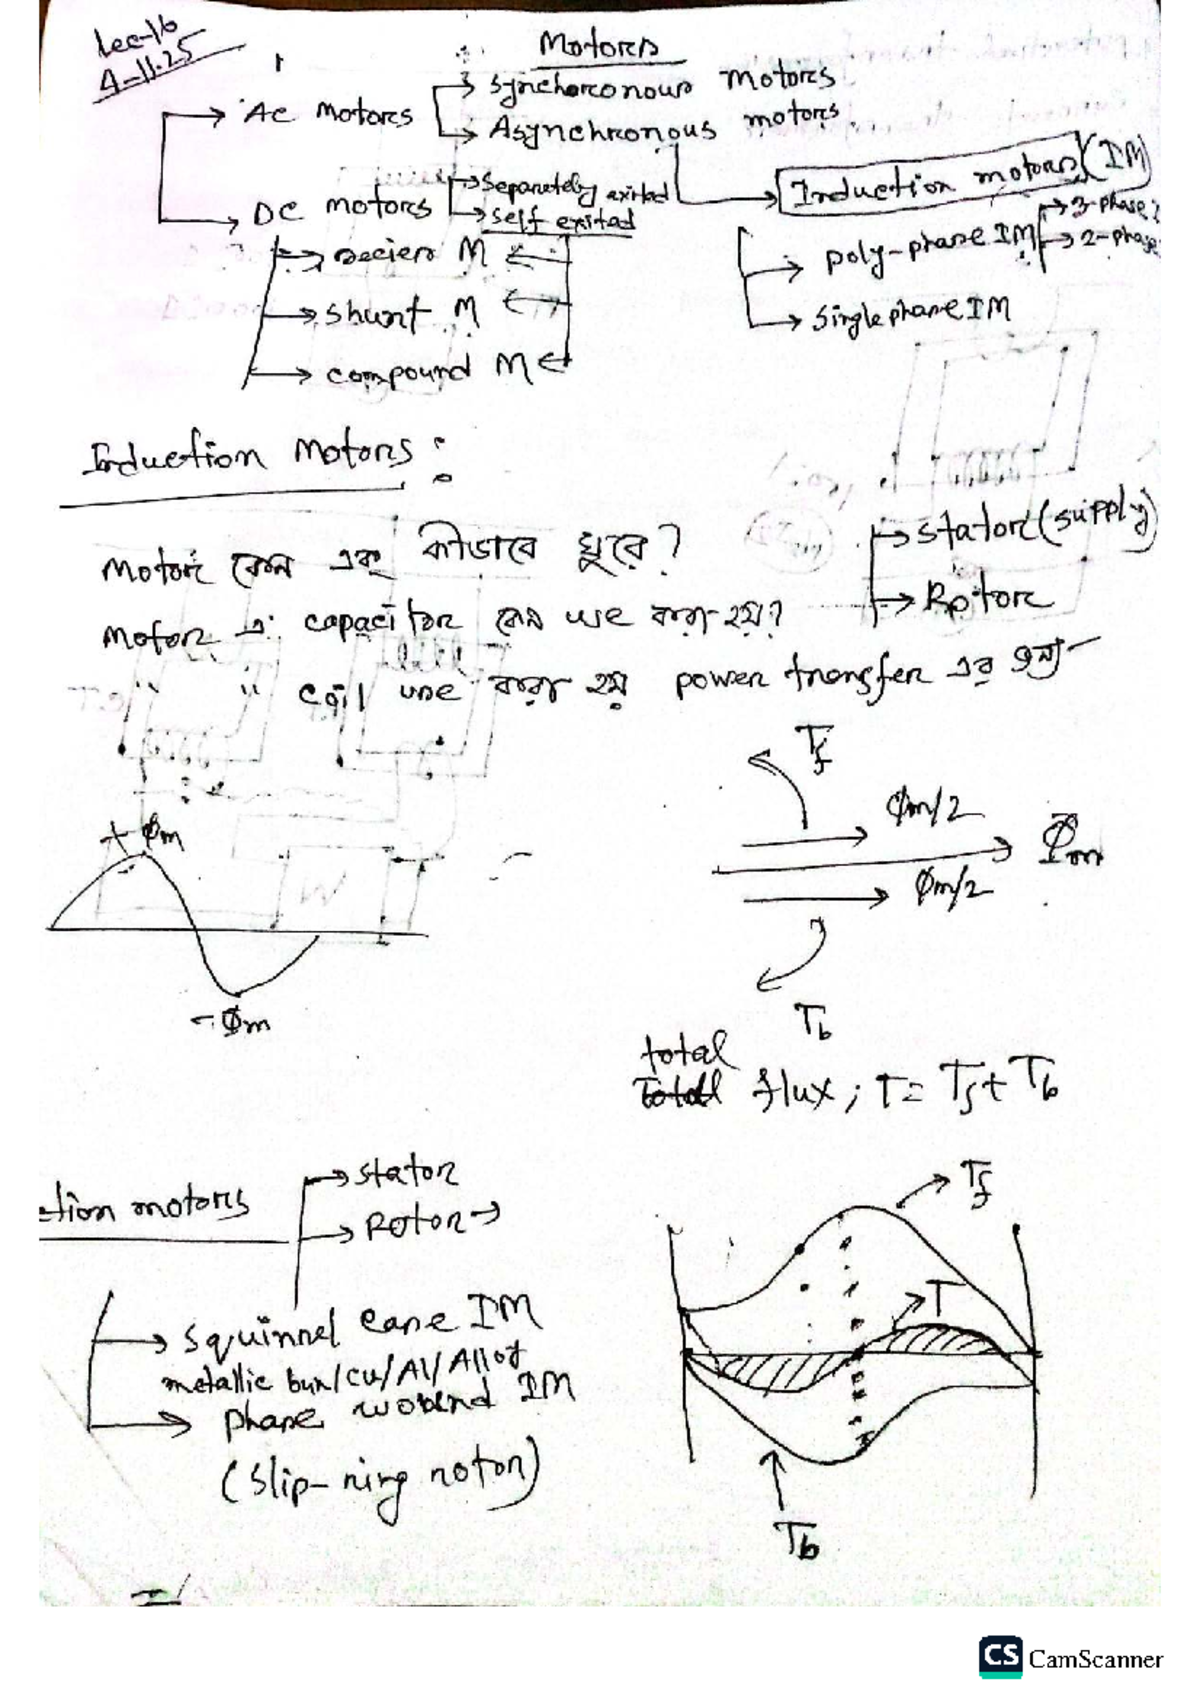 Lec-16
4-11.25
Motors
AC Motors
Synchoronous motors
Asynchronous motors
Induction motors (IM)
DC motors
Separetely exited
self exited
poly-phase IM
3-phase
2-phase
Single phase IM
series M
shunt M
compound M
Induction Motors :
Motor কেন এবং কীভাবে ঘুরে?
Stator (supply)
Rotor
Motor এ capacitor কেন use করা হয়?
" " coil use করা হয় power transfer এর জন্য
+ ϕm
- ϕm
Tf
ϕm/2
ϕm
ϕm/2
Tb
total
Total flux ; T = Tf + Tb
ction motors
Stator
Rotor →
squirrel cage IM
metallic bur/cu/Al/Alloy
phase wound IM
(slip-ring rotor)
Tf
T
Tb
CS CamScanner